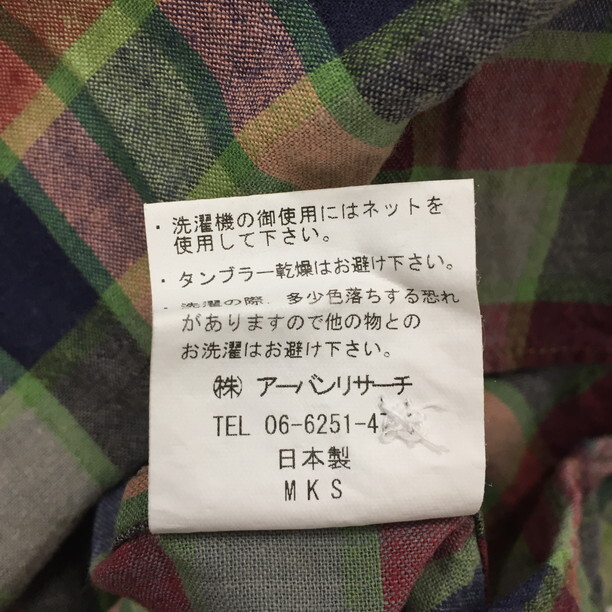 ・洗濯機の御使用にはネットを
使用して下さい。
・タンブラー乾燥はお避け下さい。
・洗濯の際、多少色落ちする恐れ
がありますので他の物との
お洗濯はお避け下さい。
㈱ アーバンリサーチ
TEL 06-6251-4
日本製
MKS